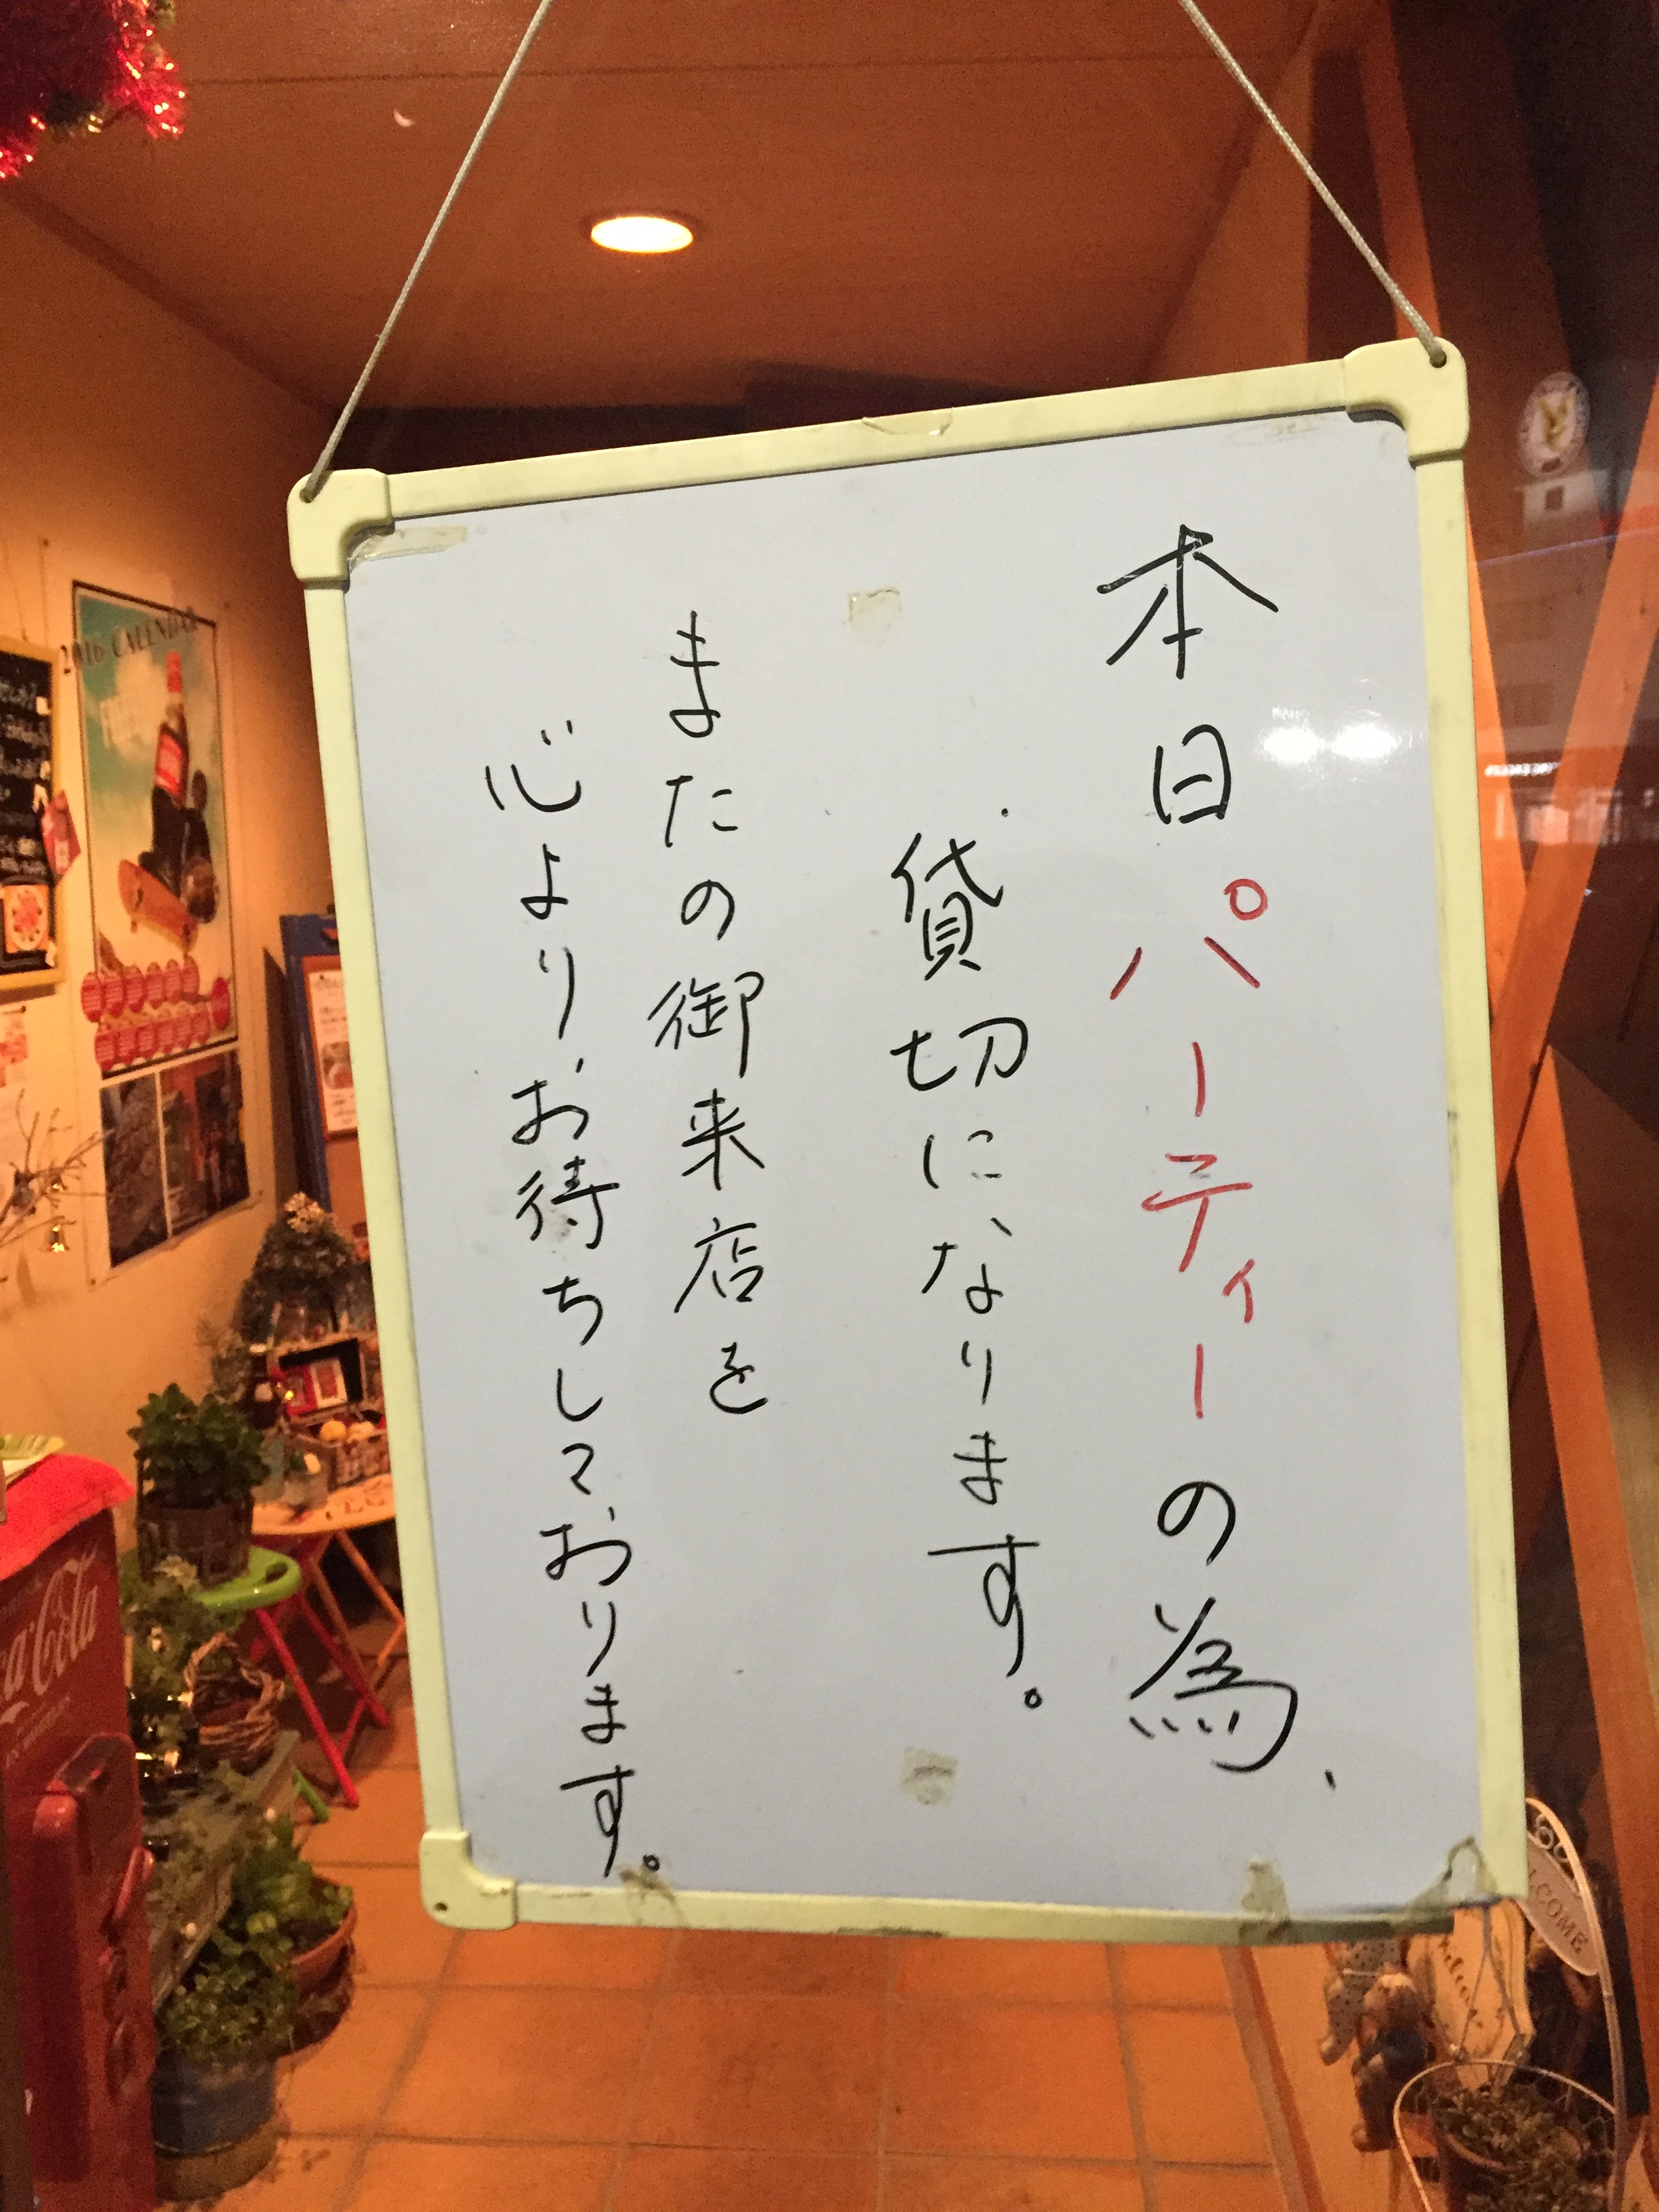 本日パーティーの為、
貸切になります。
またの御来店を
心よりお待ちしております。
2016 CALENDAR
Coca-Cola
WELCOME